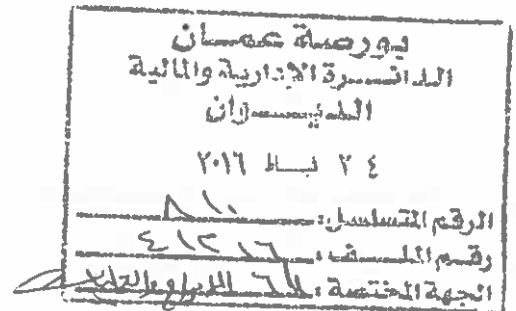 بورصة عمان
الدائرة الإدارية والمالية
الديوان
٢٤ شباط ٢٠١٦
الرقم المتسلسل: ٨١٠
رقم الملف: ٤١٢١٦
الجهة المختصة: